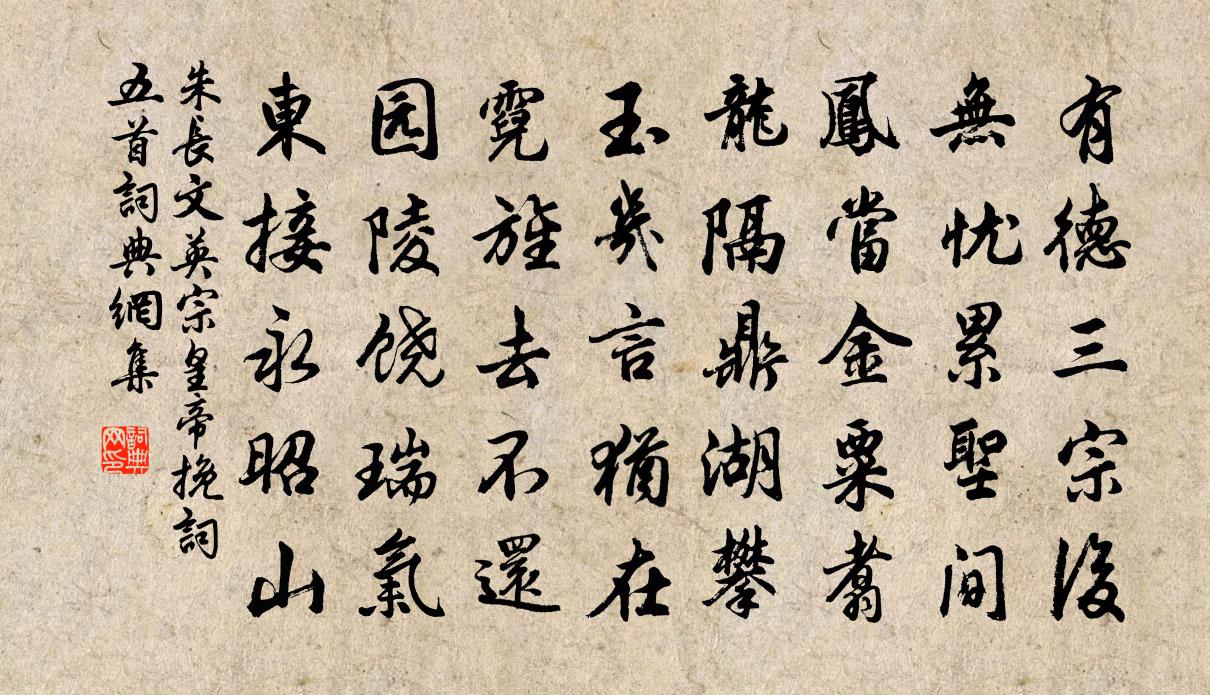 有德三宗後
無忧累聖间
鳳當金粟翥
龍隔鼎湖攀
玉几言猶在
霓旌去不還
园陵饶瑞氣
東接永昭山
朱長文英宗皇帝挽詞
五首詞典網集
詞典
网印